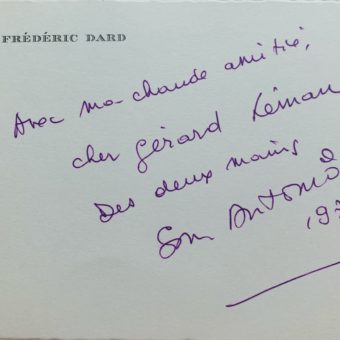 FRÉDÉRIC DARD
Avec ma chaude amitié,
cher Gérard Léman
Des deux mains à
San Antonio
197